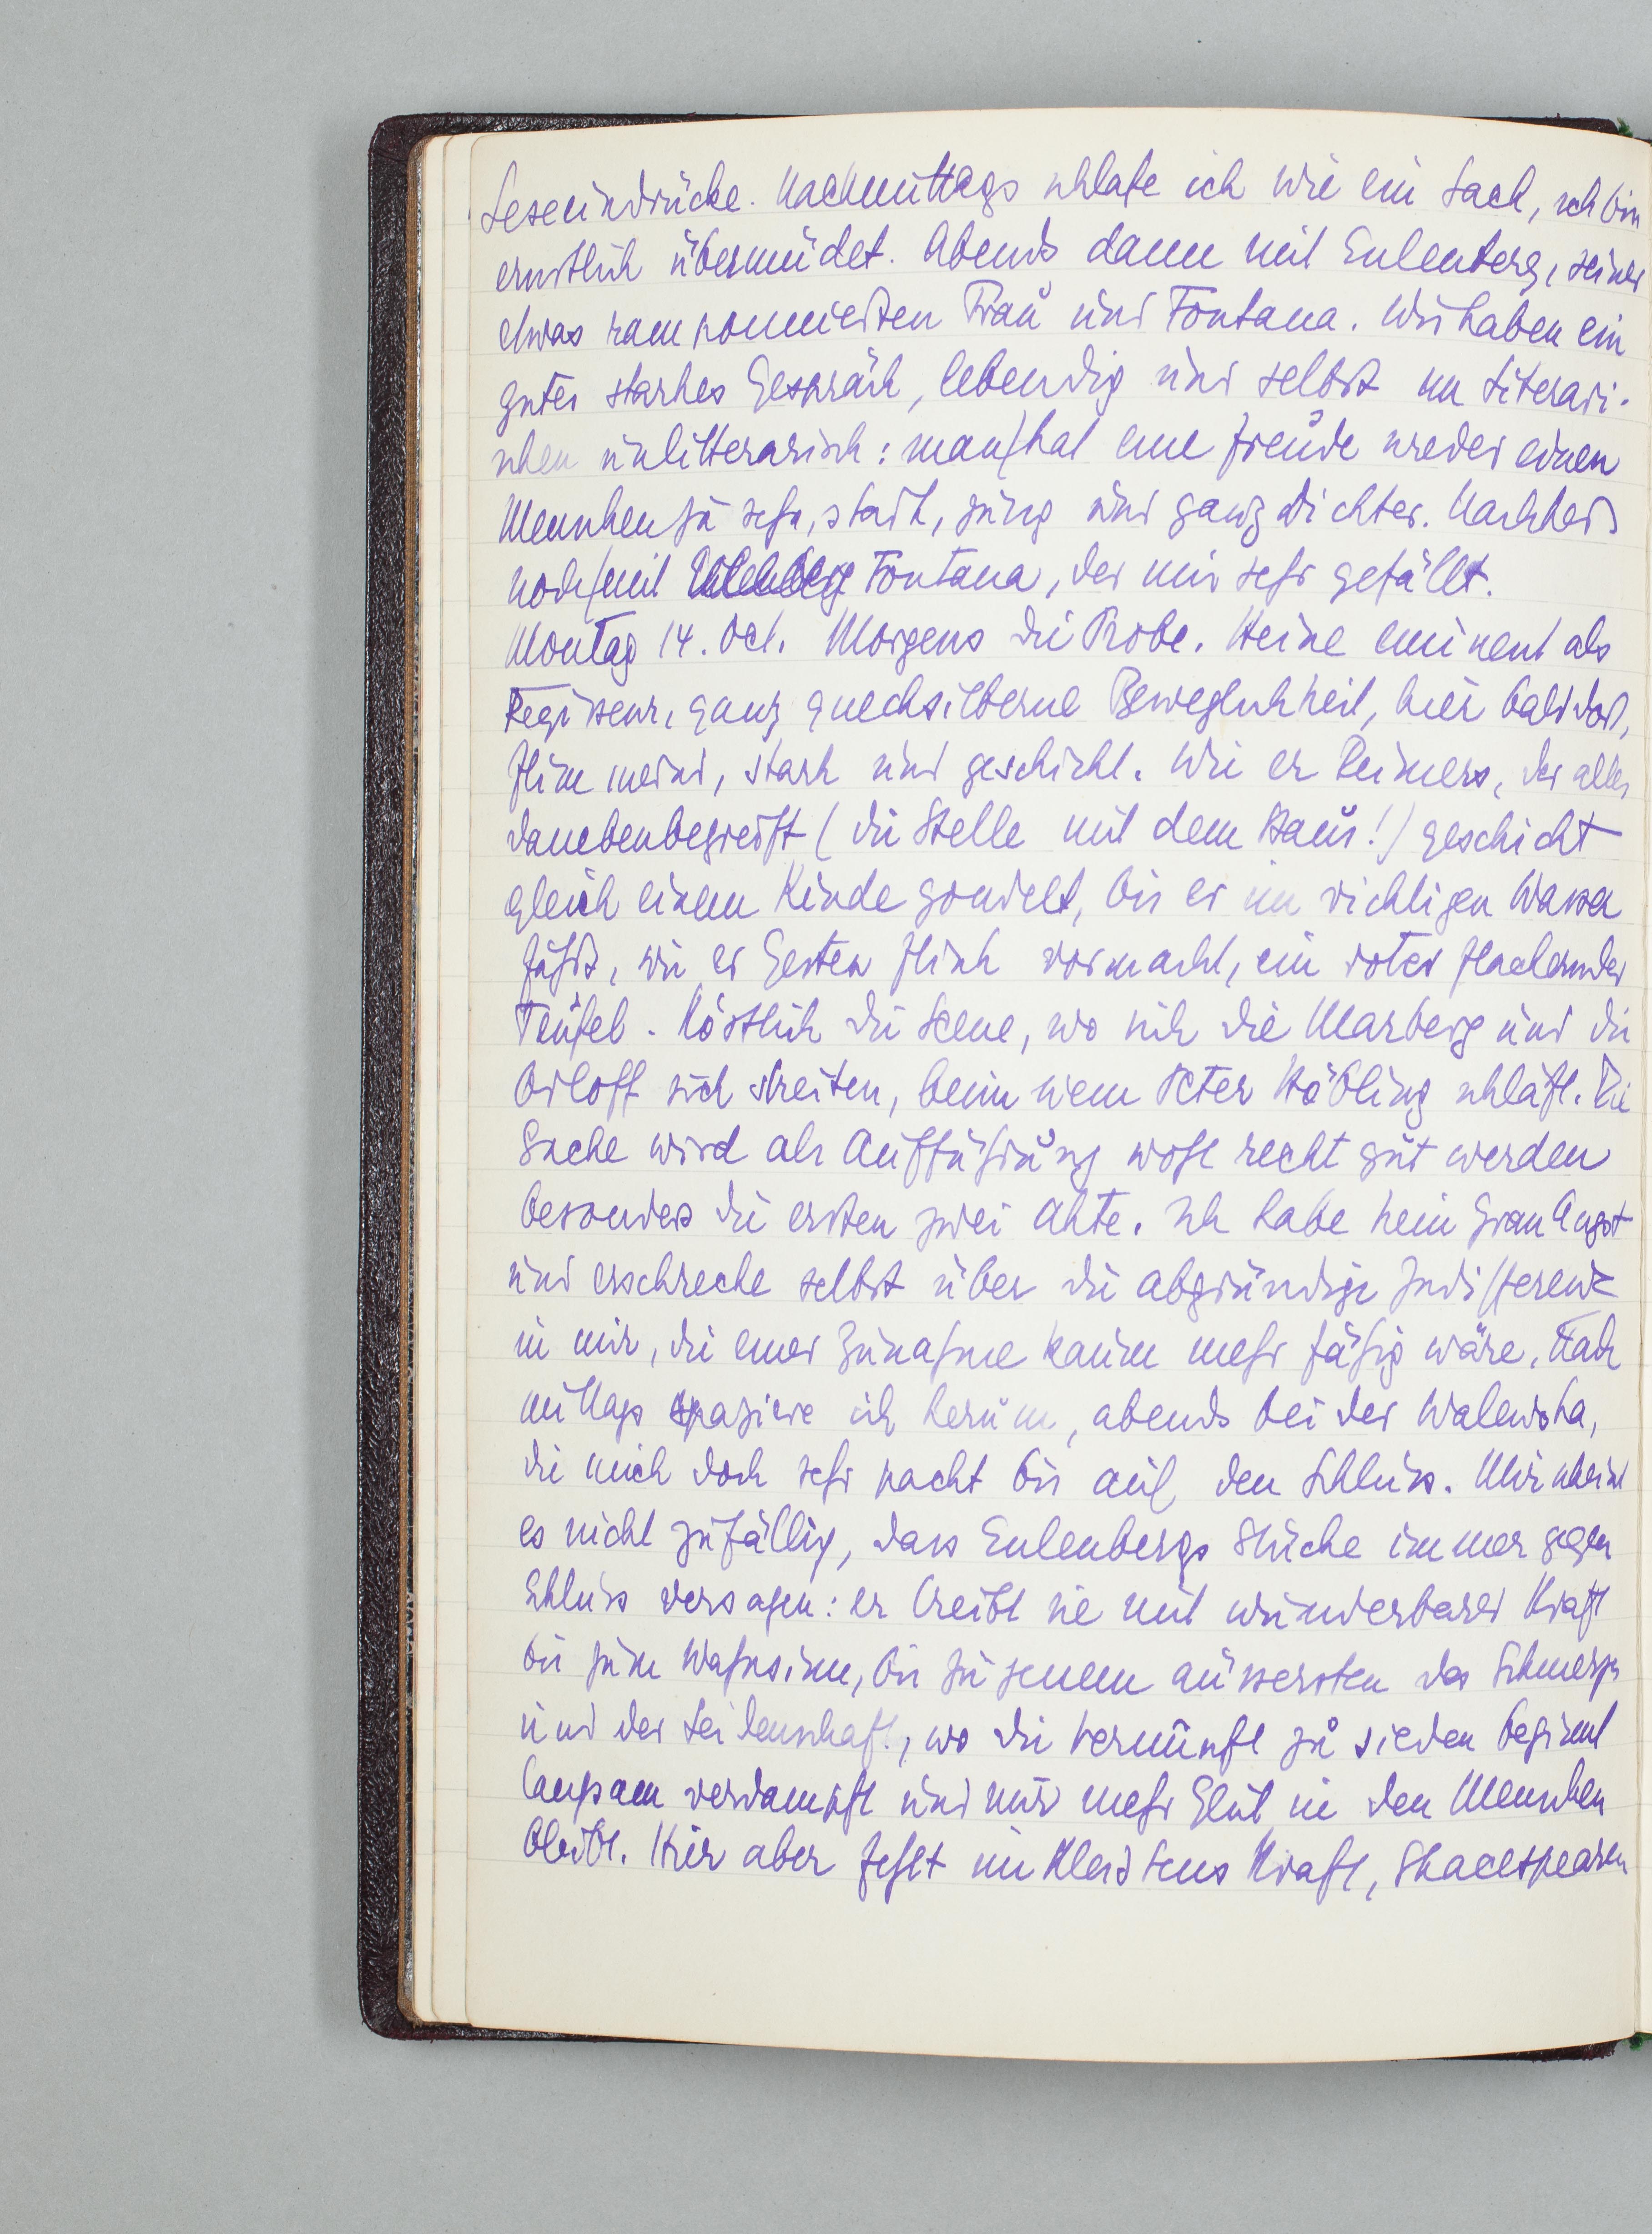 Leseeindrücke. Nachmittags schlafe ich wie ein Sack, ich bin
ernstlich übermüdet. Abends dann mit Eulenberg, seiner
etwas ramponnierten Frau und Fontana. Wir haben ein
gutes starkes Gespräch, lebendig und selbst im Literari-
schen unlitterarisch: man hat eine Freude wieder einen
Menschen zu sehn, stark, jung und ganz Dichter. Nachher
noch mit Fontana, der mir sehr gefällt.
Montag 14. Oct. Morgens die Probe. Heine eminent als
Regisseur, ganz quecksilberne Beweglichkeit, bald dort,
stark und geschickt. Wie er Reimers, der alles
danebenbegreift (die Stelle mit dem Haus!) geschickt
gleich einem Kinde gondelt, bis er im richtigen Wasser
fährt, wie er Gesten flink vormacht, ein roter flackernder
Teufel. Köstlich die Scene, wo sich die Marberg und die
Orloff sich streiten, bei wem Peter Höbling schläft. Die
Sache wird als Aufführung wohl recht gut werden
besonders die ersten zwei Akte. Ich habe kein Gran Angst
und erschrecke selbst über die abgründige Indifferenz
in mir, die einer Zunahme kaum mehr fähig wäre. Nach
mittags spaziere ich herum, abends bei der Walewska,
die mich doch sehr packt bis auf den Schluss. Mir scheint
es nicht zufällig, dass Eulenbergs Stücke immer gegen
Schluss versagen: er treibt sie mit wunderbarer Kraft
bis zum Wahnsinn, bis zu jenem äussersten des Schmerzes
und der Leidenschaft, wo die Vernunft zu sieden beginnt
langsam verdampft und nur mehr Glut in den Menschen
bleibt. Hier aber fehlt ihm Kleistens Kraft, Shacespearen